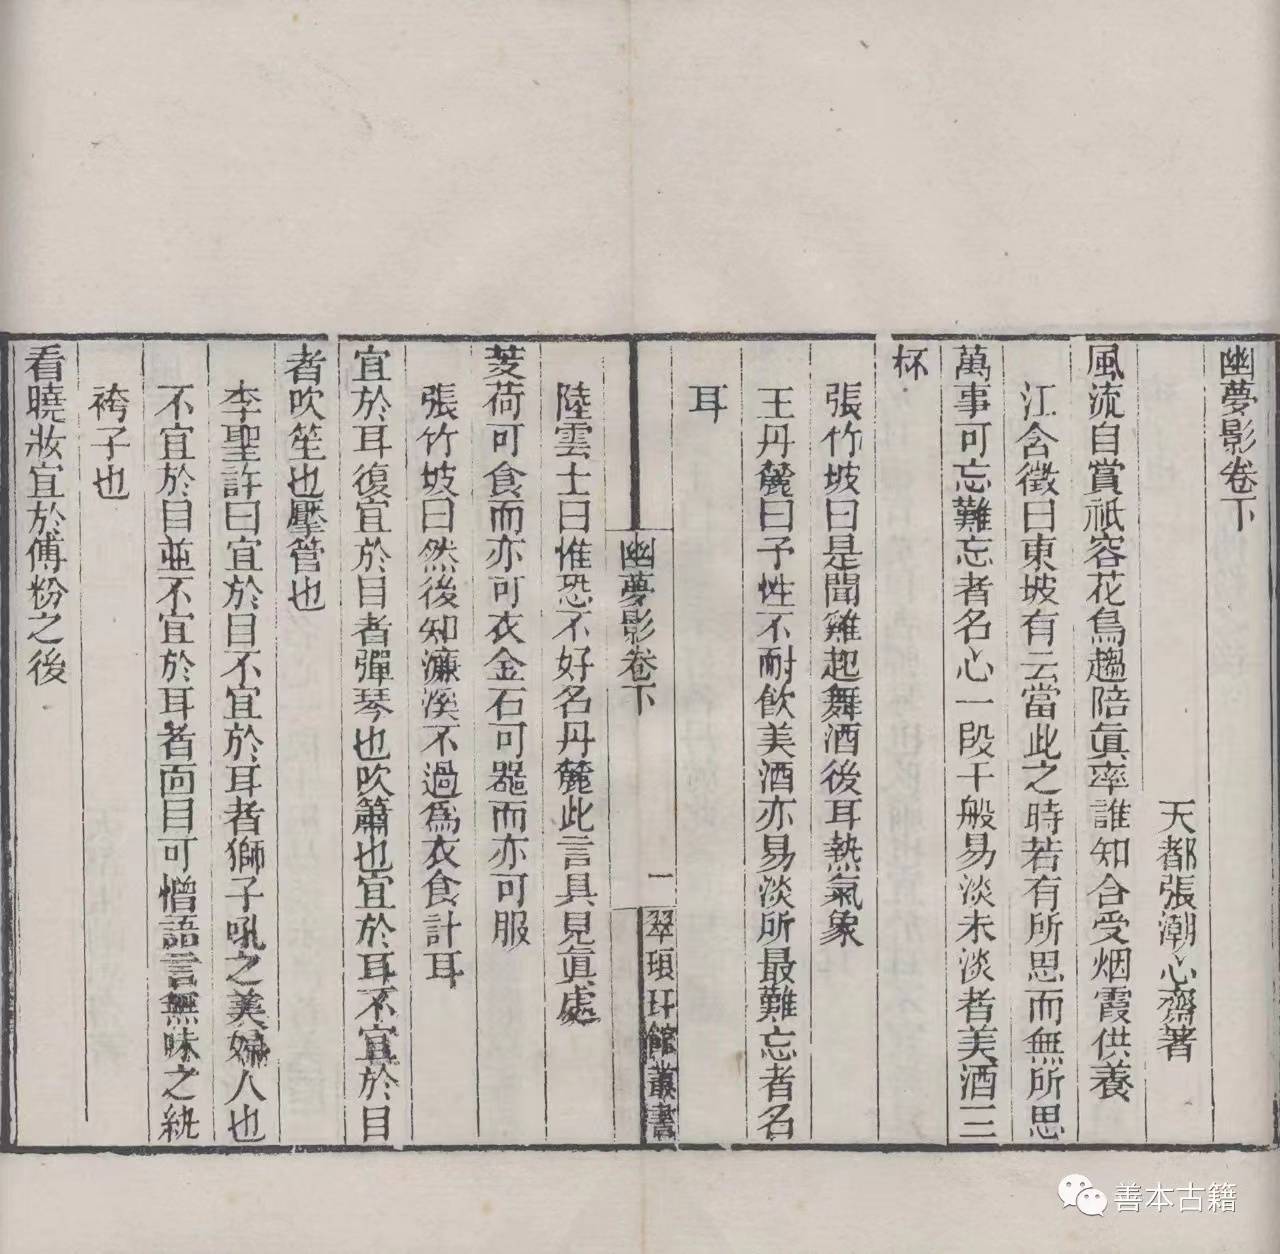 幽夢影卷下
天都張潮心齋著
風流自賞祇容花鳥趨陪眞率誰知合受烟霞供養
江含徵曰東坡有云當此之時若有所思而無所思
萬事可忘難忘者名心一段千般易淡未淡者美酒三
杯
張竹坡曰是聞雞起舞酒後耳熱氣象
王丹麓曰予性不耐飲美酒亦易淡所最難忘者名
耳
陸雲士曰惟恐不好名丹麓此言具見眞處
芰荷可食而亦可衣金石可器而亦可服
張竹坡曰然後知濂溪不過爲衣食計耳
宜於耳復宜於目者彈琴也吹簫也宜於耳不宜於目
者吹笙也擪管也
李聖許曰宜於目不宜於耳者獅子吼之美婦人也
不宜於目並不宜於耳者面目可憎語言無味之紈
袴子也
看曉妝宜於傅粉之後
幽夢影卷下
一
翠琅玕館叢書
善本古籍